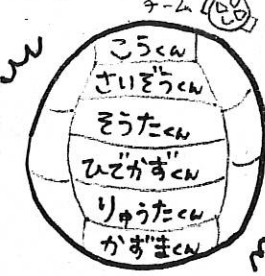 チーム
こうくん
さいぞうくん
そうたくん
ひでかずくん
りゅうたくん
かずまくん